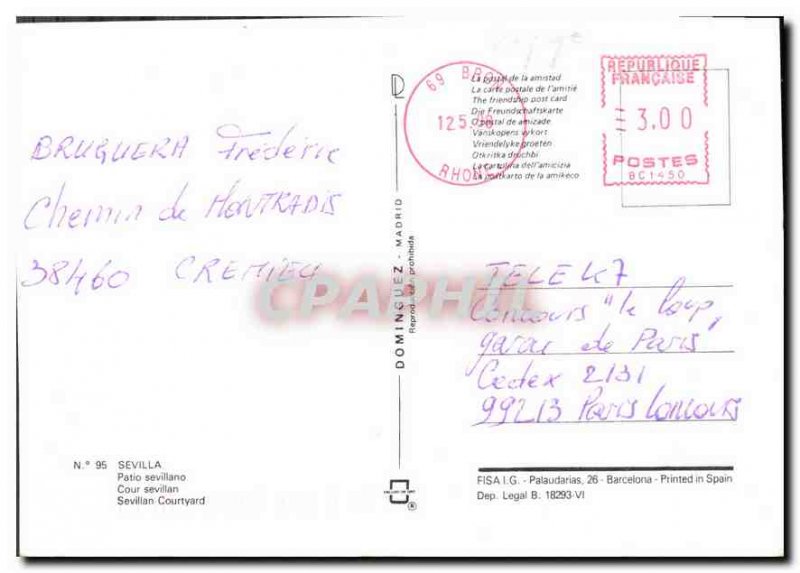 BRUGUERA Frédéric
Chemin de MONTRADIS
38460 CREMIEU
69 BRON
12.5.
RHONE
La postal de la amistad
La carte postale de l'amitié
The friendship post card
Die Freundschaftskarte
O postal de amizade
Vänskapens vykort
Vriendelyke groeten
Otkritka druchbi
La cartolina dell'amicizia
La postkarto de la amikeco
REPUBLIQUE
FRANÇAISE
3.00
POSTES
BC1450
DOMINGUEZ - MADRID
Reproducción prohibida
CPAPHIL
TELE K7
Concours "le loup,
garou de Paris
Cedex 2131
99213 Paris Concours
N.° 95 SEVILLA
Patio sevillano
Cour sevillan
Sevillan Courtyard
FISA I.G. - Palaudarias, 26 - Barcelona - Printed in Spain
Dep. Legal B. 18293-VI